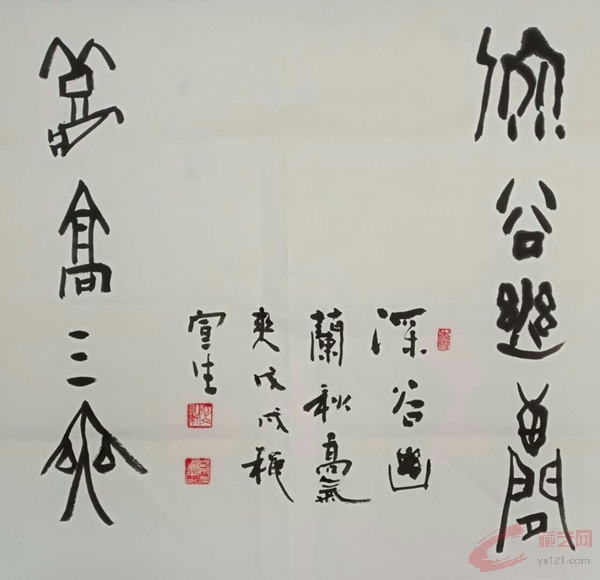 深谷幽蘭
秋高气爽
深谷幽
蘭秋高氣
爽戊戌穐
宣生
藏艺网
ys121.com